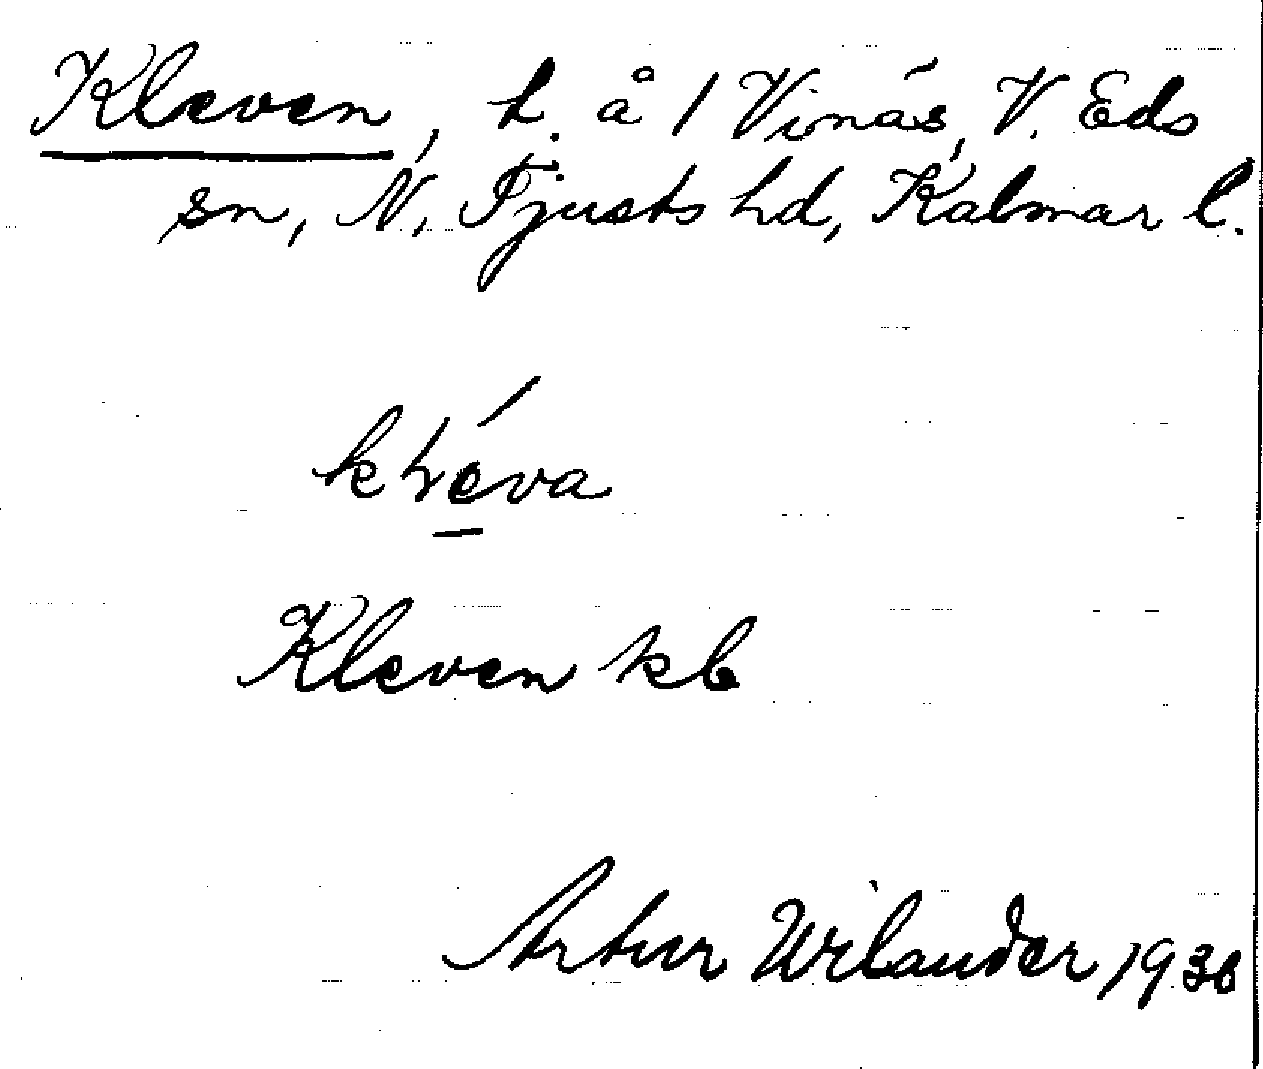 Kleven, h. å 1 Vinäs, V. Eds
sn, N. Tjusts hd, Kalmar l.
kléva
Kleven kb
Artur Wilander 1936